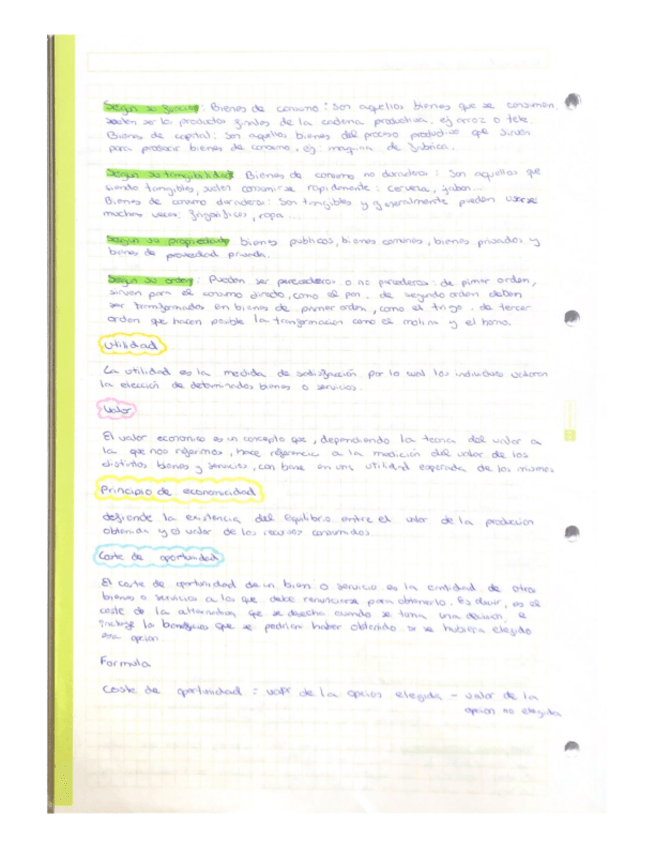 Según su función: Bienes de consumo: Son aquellos bienes que se consumen,
suelen ser los productos finales de la cadena productiva, ej arroz o tele.
Bienes de capital: Son aquellos bienes del proceso productivo que sirven
para producir bienes de consumo, ej. maquina de fabrica.
Según su tangibilidad Bienes de consumo no duraderos: Son aquellos que
siendo tangibles, suelen consumirse rapidamente: cerveza, jabon...
Bienes de consumo duraderos: Son tangibles y generalmente pueden usarse
muchas veces: frigorificos, ropa...
Según su propiedad, bienes publicos, bienes comunes, bienes privados y
bienes de propiedad privada.
Según su orden: Pueden ser perecederos o no perecederos: de primer orden,
sirven para el consumo directo, como el pan. de segundo orden deben
ser transformados en bienes de primer orden, como el trigo. de tercer
orden que hacen posible la transformacion como el molino y el horno.
Utilidad
La utilidad es la medida de satisfacción por la cual los individuos valoran
la elección de determinados bienes o servicios.
Valor
El valor economico es un concepto que, dependiendo la teoria del valor a
la que nos referimos, hace referencia a la medición del valor de los
distintos bienes y servicios, con base en una utilidad esperada de los mismos.
Principio de economicidad
defiende la existencia del equilibrio entre el valor de la produccion
obtenida y el valor de los recursos consumidos.
Coste de oportunidad
El coste de oportunidad de un bien o servicio es la cantidad de otros
bienes o servicios a los que debe renunciarse para obtenerlo. Es decir, es el
coste de la alternativa que se desecha cuando se toma una decision, e
incluye los beneficios que se podrian haber obtenido si se hubiera elegido
esa opcion.
Formula
Coste de oportunidad = valor de la opcion elegida - valor de la
opcion no elegida